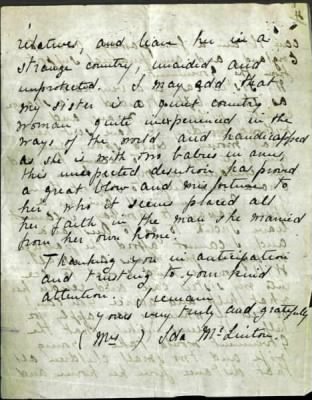 relatives, and leave her in a
strange country, unaided, and
unprotected. I may add that
my sister is a quiet country
woman quite inexperienced in the
ways of the world and handicapped
as she is with two babies in arms,
this unexpected desertion has proved
a great blow and misfortune to
her who it seems placed all
her faith in the man she married
from her own home.
Thanking you in anticipation
and trusting to your kind
attention. I remain
yours very truly and gratefully
(Mrs) Ida McLinton